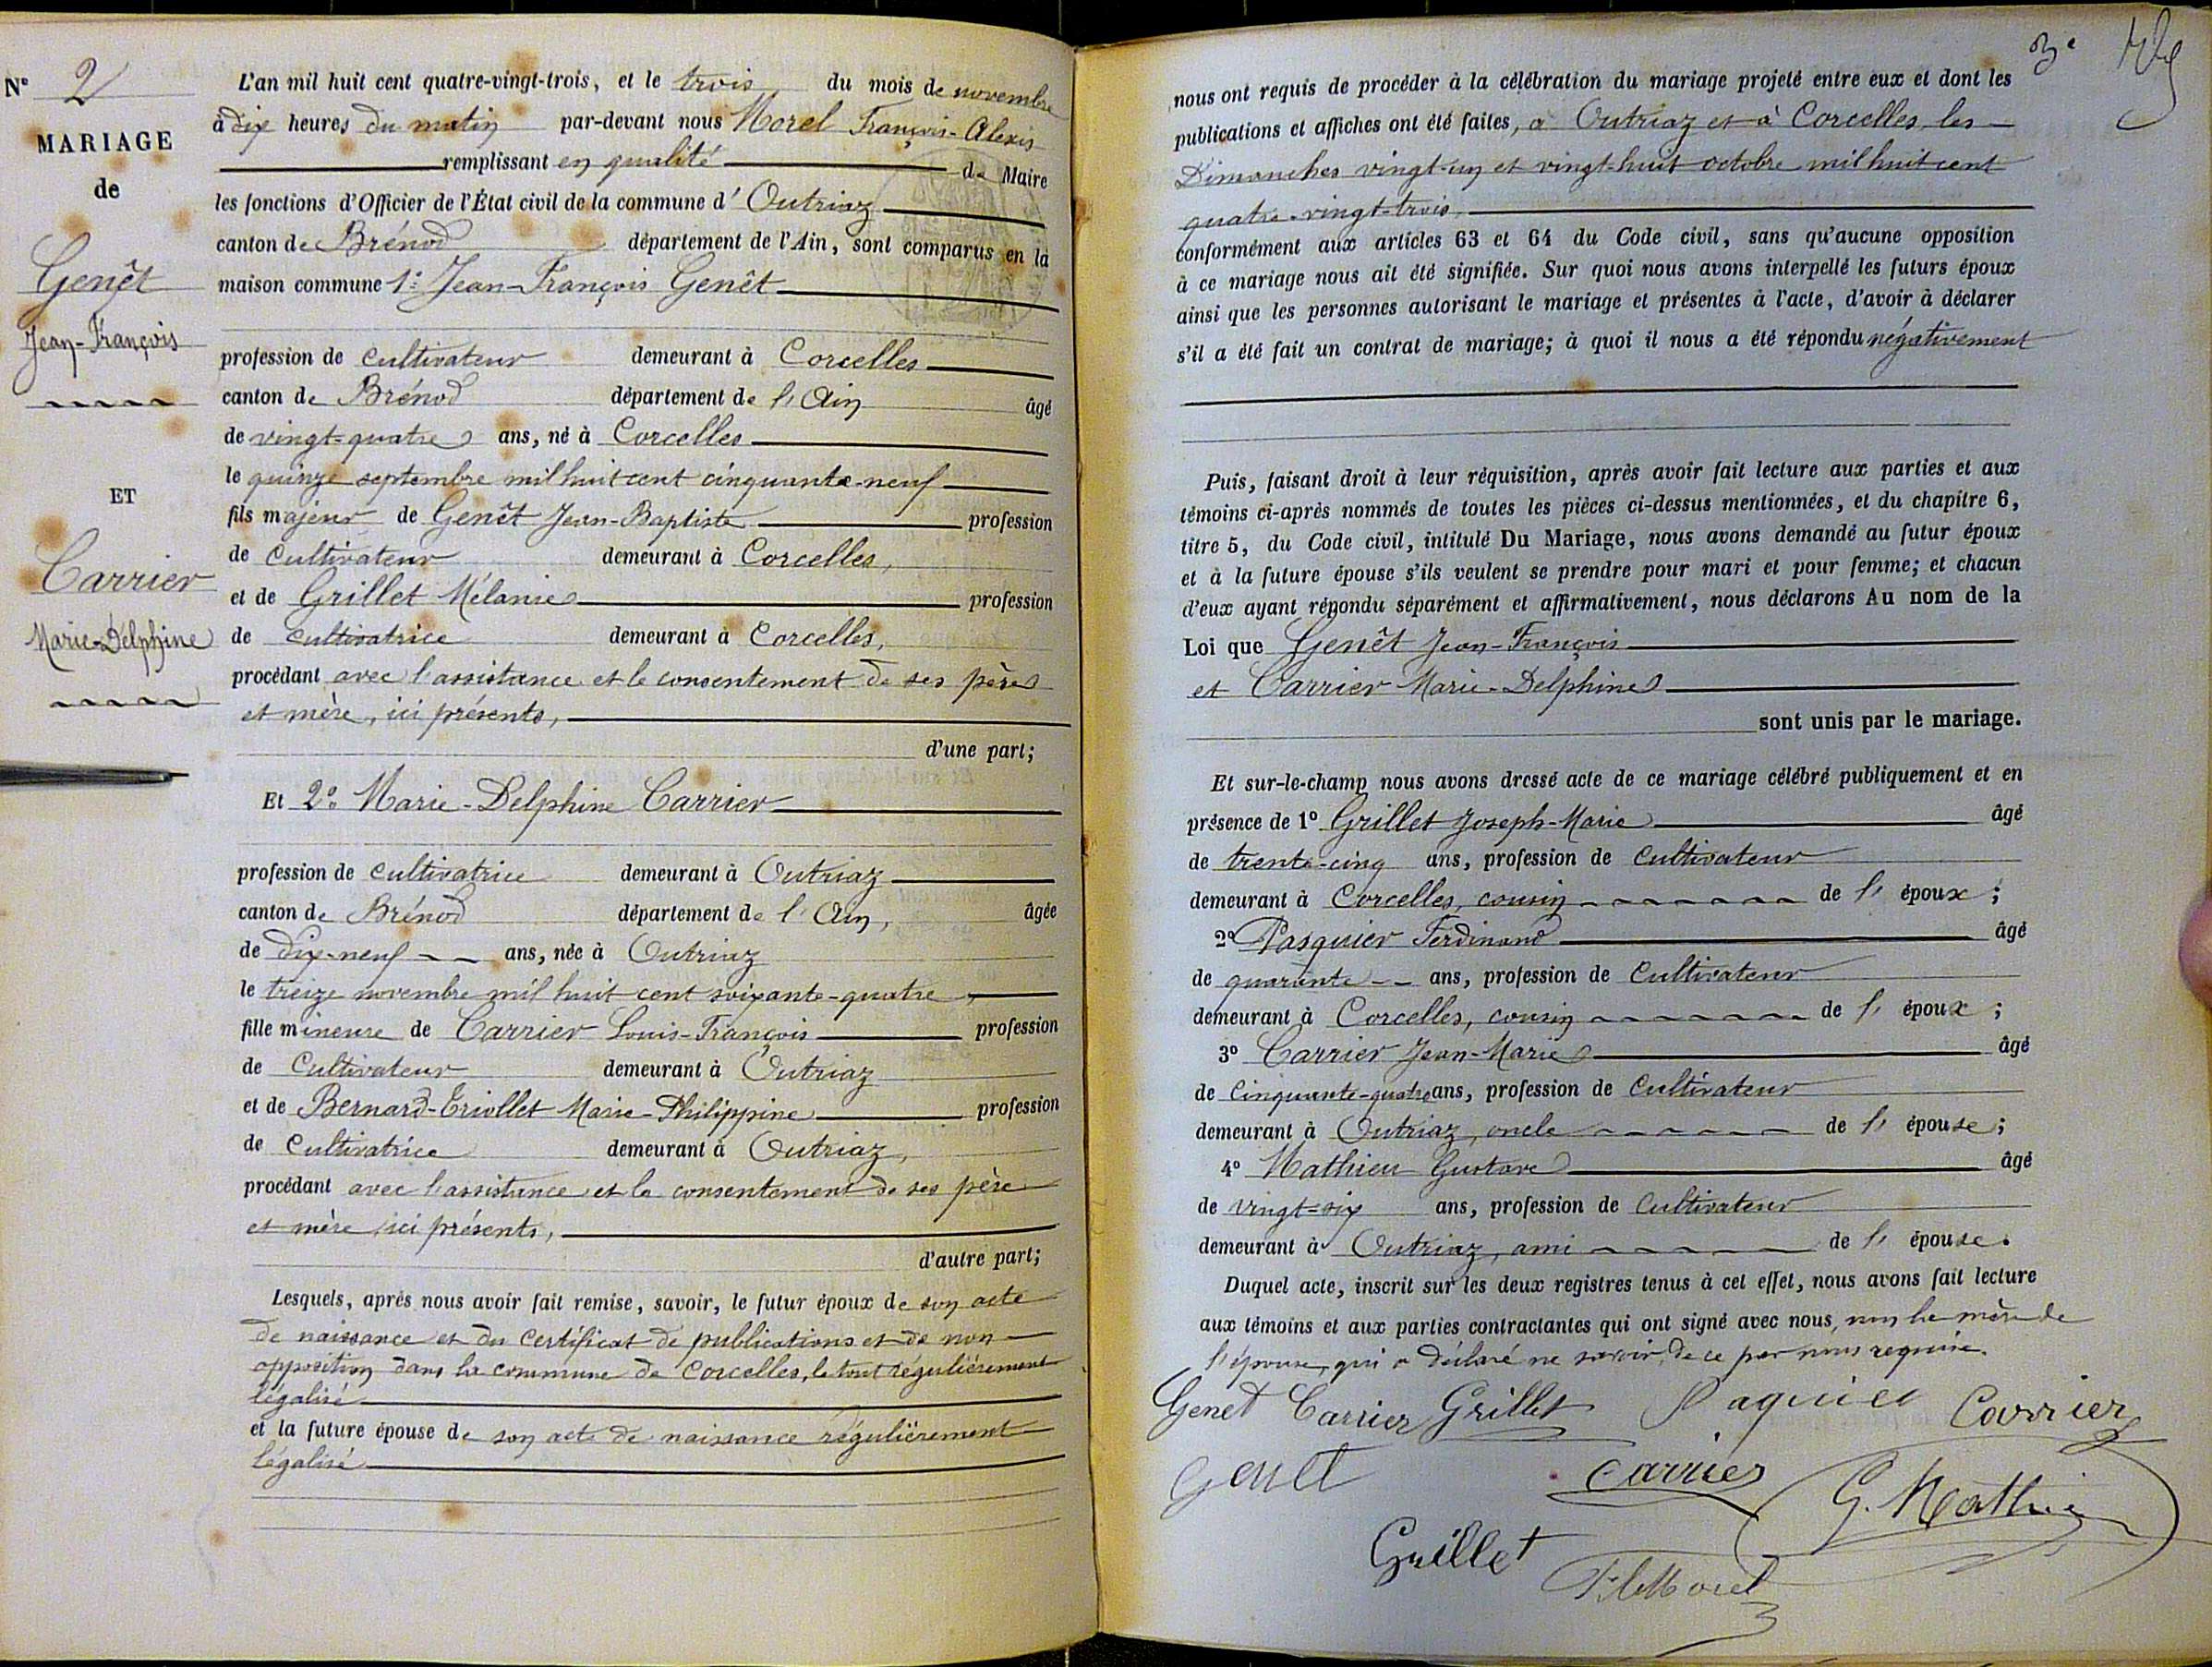 N° 2
MARIAGE
de
Genêt
Jean-François
ET
Carrier
Marie-Delphine
L'an mil huit cent quatre-vingt-trois, et le trois du mois de novembre
à dix heures du matin par-devant nous Morel François-Alexis
remplissant en qualité de Maire
les fonctions d'Officier de l'État civil de la commune d'Outriaz
canton de Brénod département de l'Ain, sont comparus en la
maison commune 1° Jean-François Genêt
profession de cultivateur demeurant à Corcelles
canton de Brénod département de l'Ain âgé
de vingt-quatre ans, né à Corcelles
le quinze septembre mil huit cent cinquante-neuf
fils majeur de Genêt Jean-Baptiste profession
de Cultivateur demeurant à Corcelles,
et de Grillet Mélanie profession
de cultivatrice demeurant à Corcelles,
procédant avec l'assistance et le consentement de ses père
et mère, ici présents,
d'une part;
Et 2° Marie-Delphine Carrier
profession de Cultivatrice demeurant à Outriaz
canton de Brénod département de l'Ain, âgée
de dix-neuf ans, née à Outriaz
le treize novembre mil huit cent soixante-quatre,
fille mineure de Carrier Louis-François profession
de Cultivateur demeurant à Outriaz
et de Bernard-Eriollet Marie-Philippine profession
de Cultivatrice demeurant à Outriaz,
procédant avec l'assistance et le consentement de ses père
et mère, ici présents,
d'autre part;
Lesquels, après nous avoir fait remise, savoir, le futur époux de son acte
de naissance et du Certificat de publications et de non
opposition dans la commune de Corcelles, le tout régulièrement
légalisé
et la future épouse de son acte de naissance régulièrement
légalisé
3e
nous ont requis de procéder à la célébration du mariage projeté entre eux et dont les
publications et affiches ont été faites, à Outriaz et à Corcelles, les
Dimanches vingt-un et vingt-huit octobre mil huit cent
quatre-vingt-trois,
conformément aux articles 63 et 64 du Code civil, sans qu'aucune opposition
à ce mariage nous ait été signifiée. Sur quoi nous avons interpellé les futurs époux
ainsi que les personnes autorisant le mariage et présentes à l'acte, d'avoir à déclarer
s'il a été fait un contrat de mariage; à quoi il nous a été répondu négativement
Puis, faisant droit à leur réquisition, après avoir fait lecture aux parties et aux
témoins ci-après nommés de toutes les pièces ci-dessus mentionnées, et du chapitre 6,
titre 5, du Code civil, intitulé Du Mariage, nous avons demandé au futur époux
et à la future épouse s'ils veulent se prendre pour mari et pour femme; et chacun
d'eux ayant répondu séparément et affirmativement, nous déclarons Au nom de la
Loi que Genêt Jean-François
et Carrier Marie-Delphine
sont unis par le mariage.
Et sur-le-champ nous avons dressé acte de ce mariage célébré publiquement et en
présence de 1° Grillet Joseph-Marie âgé
de trente-cinq ans, profession de Cultivateur
demeurant à Corcelles, cousin de l'époux;
2° Pasquier Ferdinand âgé
de quarante ans, profession de Cultivateur
demeurant à Corcelles, cousin de l'époux;
3° Carrier Jean-Marie âgé
de Cinquante-quatre ans, profession de Cultivateur
demeurant à Outriaz, oncle de l'épouse;
4° Mathieu Gustave âgé
de vingt-six ans, profession de Cultivateur
demeurant à Outriaz, ami de l'épouse.
Duquel acte, inscrit sur les deux registres tenus à cet effet, nous avons fait lecture
aux témoins et aux parties contractantes qui ont signé avec nous, non la mère de
l'épouse, qui a déclaré ne savoir, de ce par nous requise.
Genet Carrier Grillet Paquier Carrier
Genet Carrier G. Mathieu
Grillet